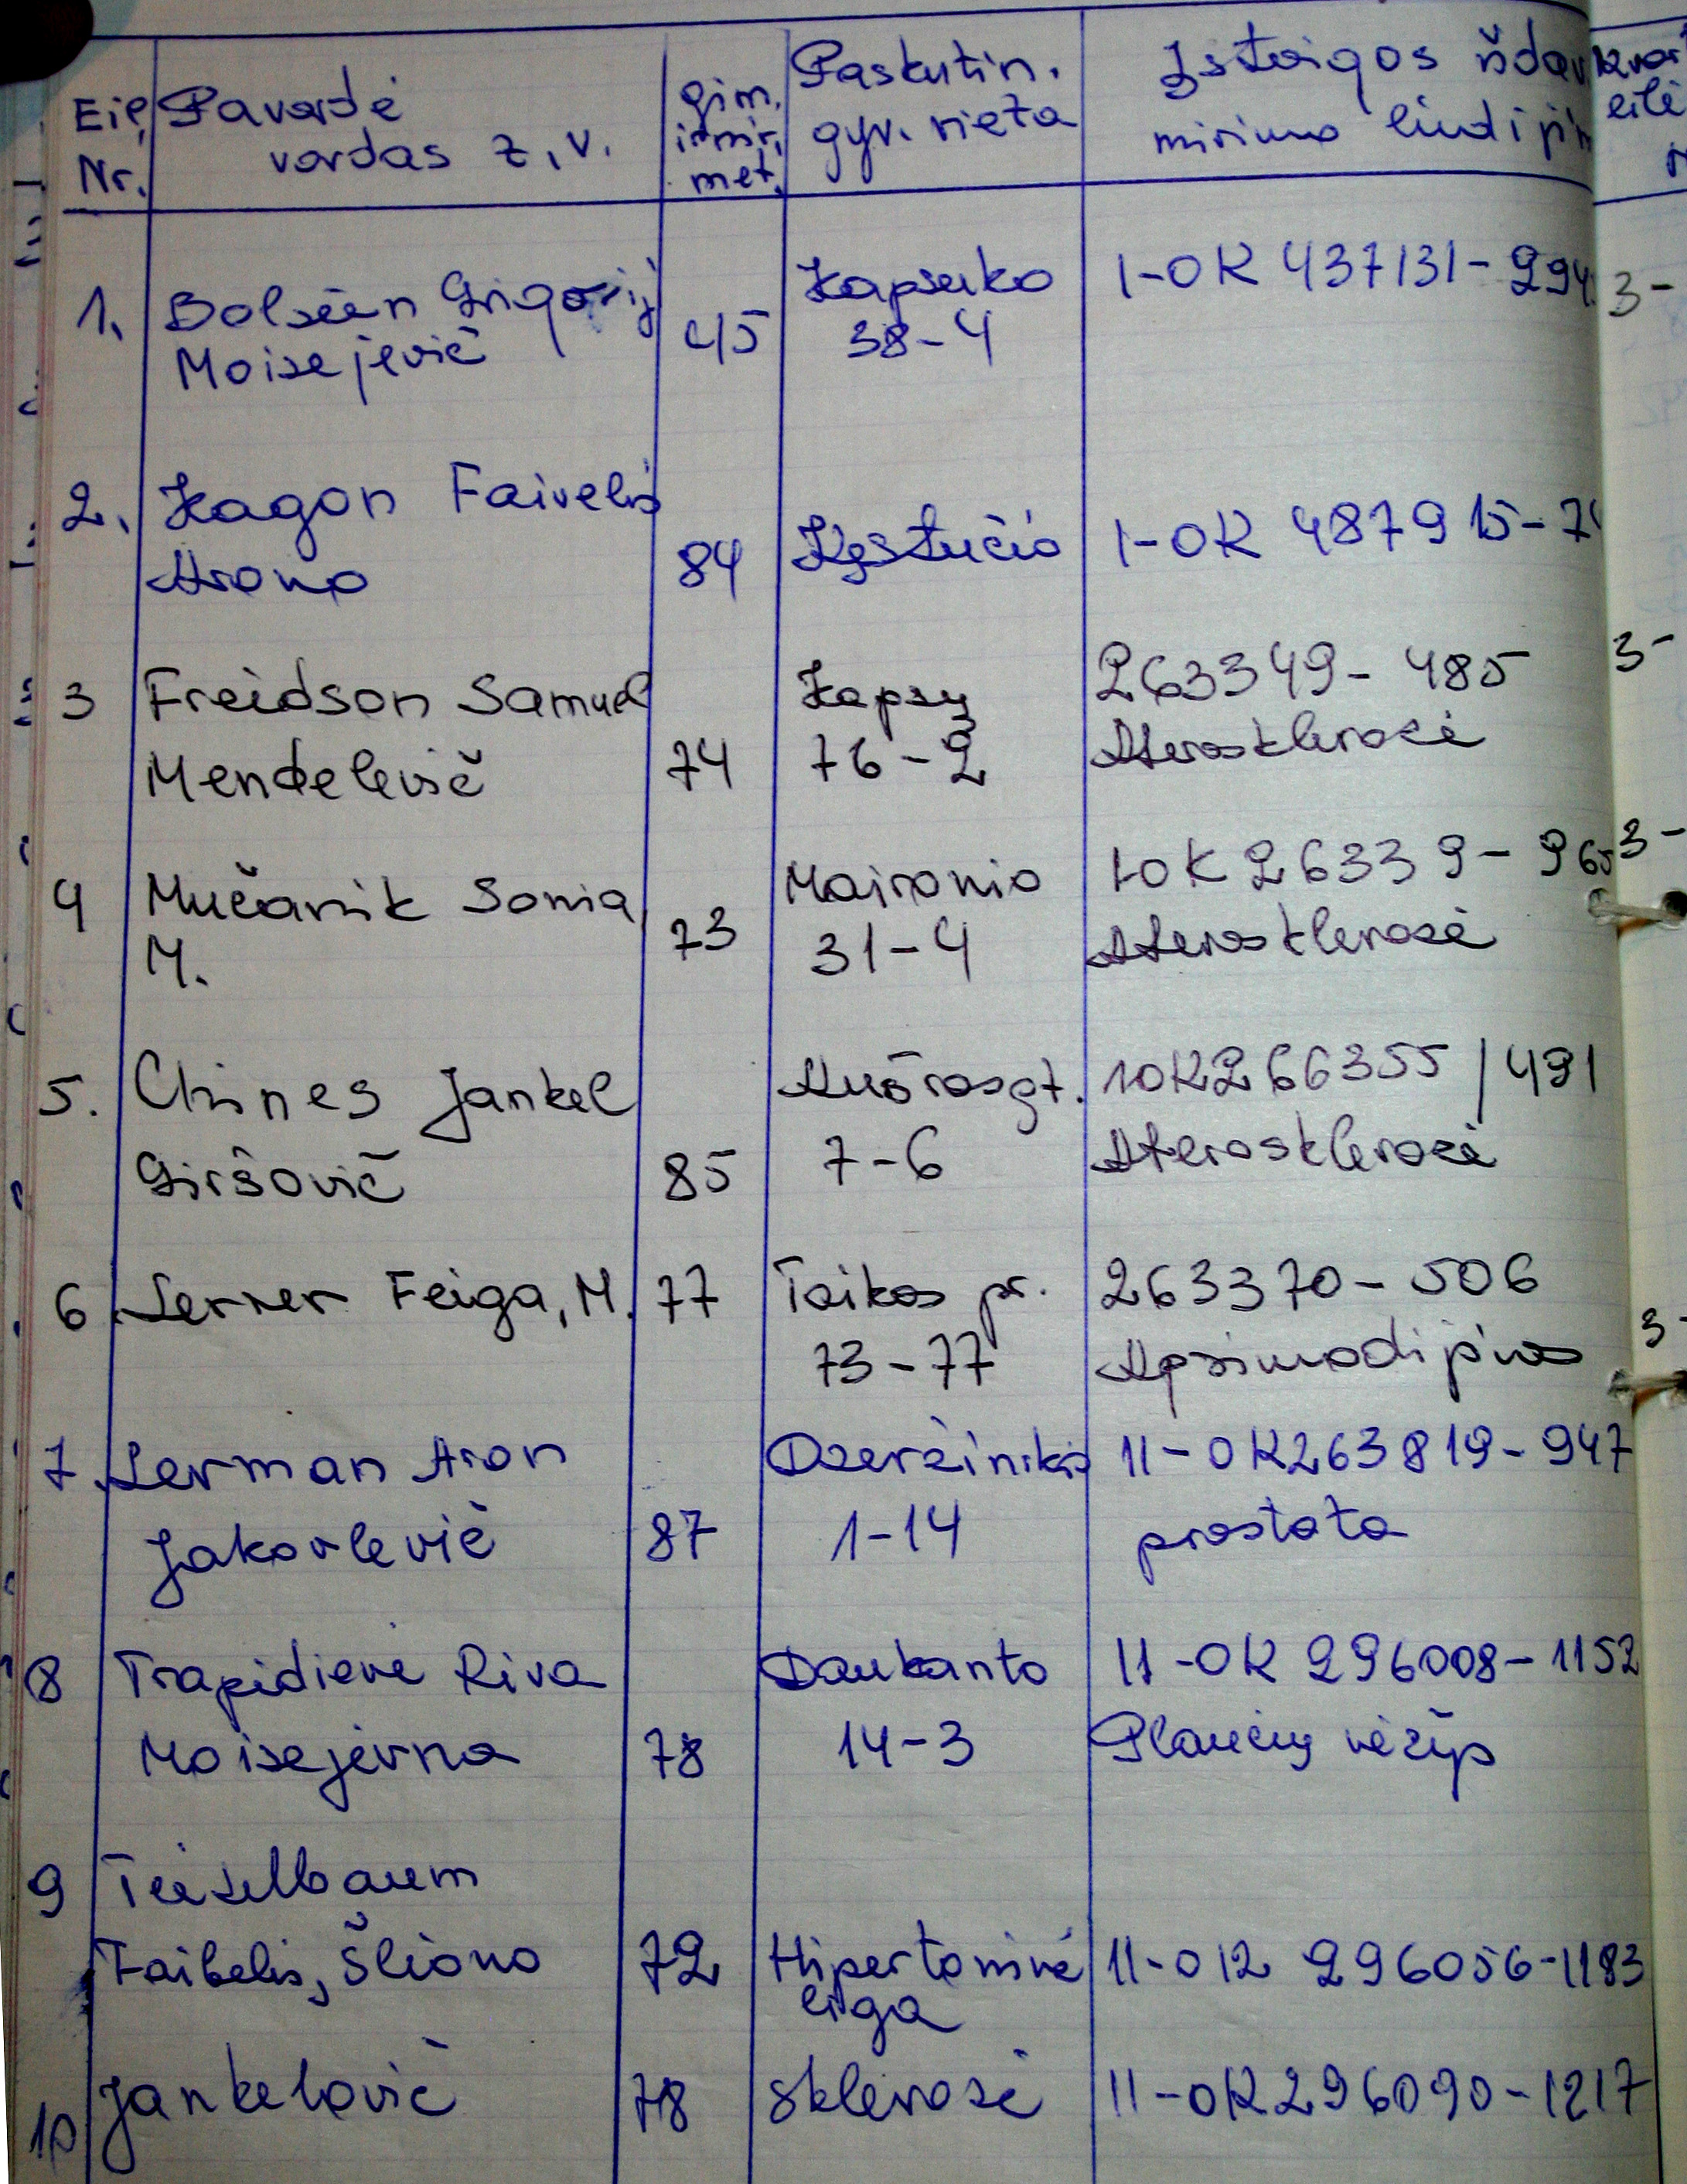 Eil. Nr.
Pavardė vardas t, v.
gim. ir mir. met.
Paskutin. gyv. vieta
Įstaigos išdav mirimo liudijim
eilė
1. Bolsėen Grigorij 45 Kapsuko 1-OK 437131-294 3-
Moisejevič 38-4
2. Kagon Faivelis
Arono 84 Kęstučio 1-OK 487915-7
3 Freidson Samuel Kapsų 263349-485 3-
Mendelevič 74 76-2 Aterosklerozė
4 Mučanik Sonia, 73 Maironio 10K 26339-965 3-
M. 31-4 Aterosklerozė
5. Chines Jankel Aušros gt. 10K266355/491
Giršovič 85 7-6 Aterosklerozė
6 Lerner Feiga, M. 77 Taikos pr. 263370-506 3-
73-77 Apsinuodijimas
7 Lerman Aron Dzeržinikio 11-OK263819-947
Jakovlevič 87 1-14 prostata
8 Trapidienė Riva Daukanto 11-OK 296008-1152
Moisejevna 78 14-3 Plaučių vėžys
9 Teitelbaum
Faibelis, Šliomo 72 Hipertoninė 11-OK 296056-1183
liga
10 Jankelovič 78 sklerozė 11-OK296090-1217